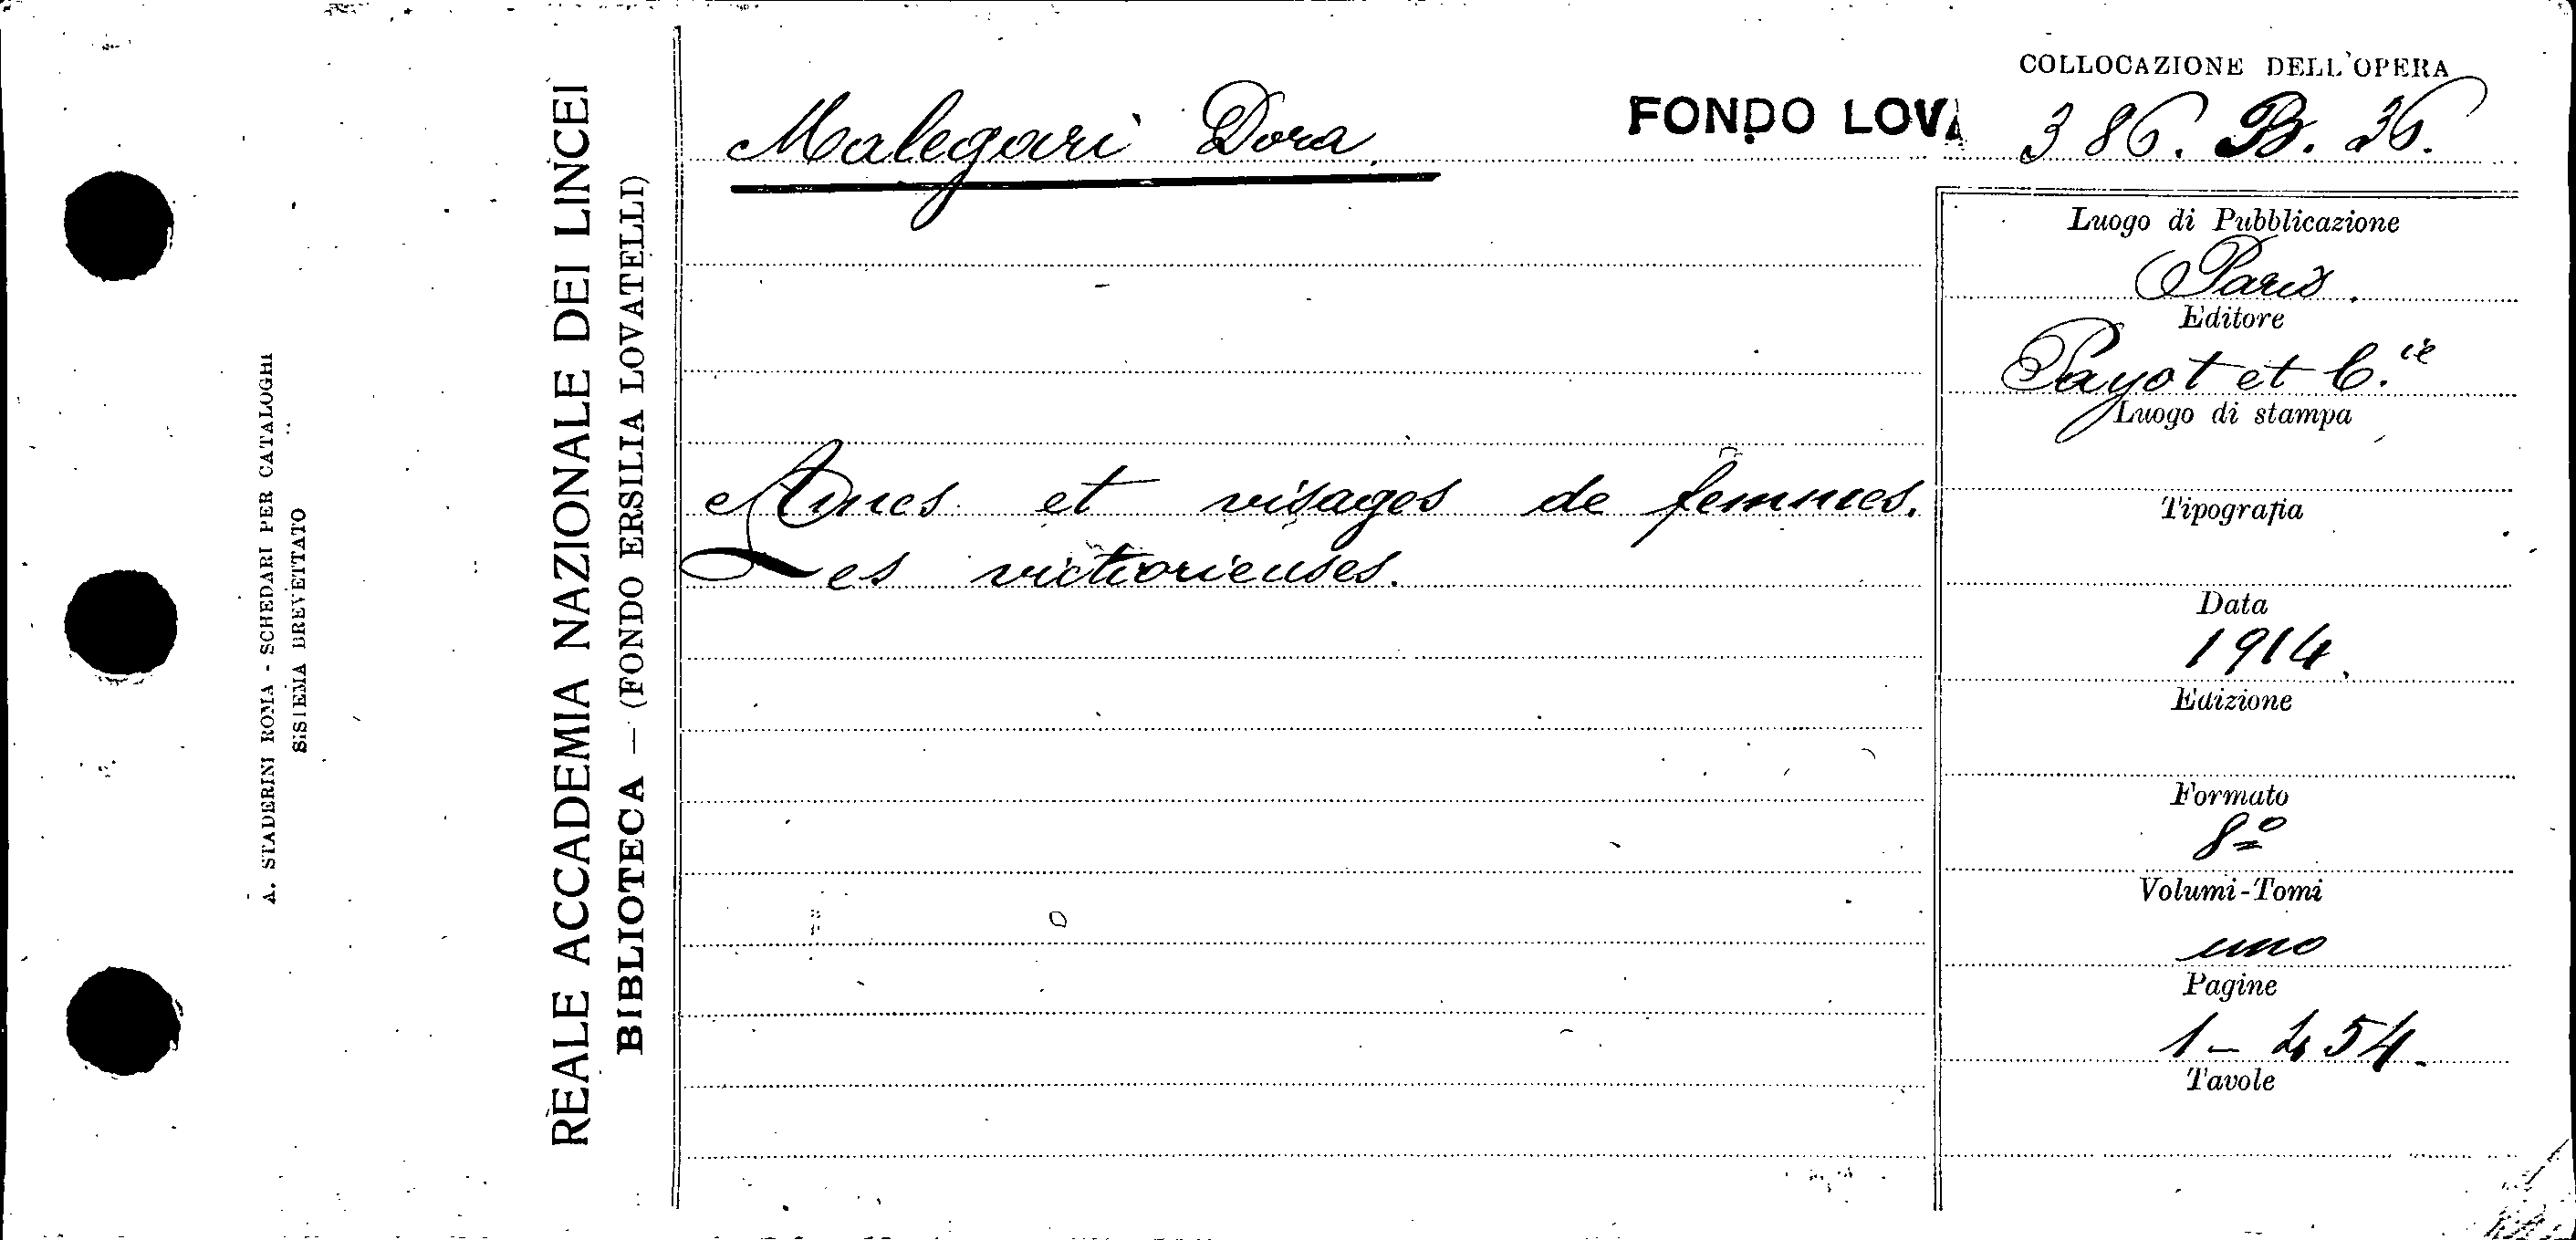 A. STADERINI ROMA - SCHEDARI PER CATALOGHI
SISTEMA BREVETTATO
REALE ACCADEMIA NAZIONALE DEI LINCEI
BIBLIOTECA — (FONDO ERSILIA LOVATELLI)
Malegari Dora.
FONDO LOVA
COLLOCAZIONE DELL'OPERA
386. B. 36.
Ames et visages de femmes.
Les victiorieuses.
Luogo di Pubblicazione
Paris.
Editore
Payot et C.ie
Luogo di stampa
Tipografia
Data
1914.
Edizione
Formato
8º
Volumi-Tomi
uno
Pagine
1-254.
Tavole